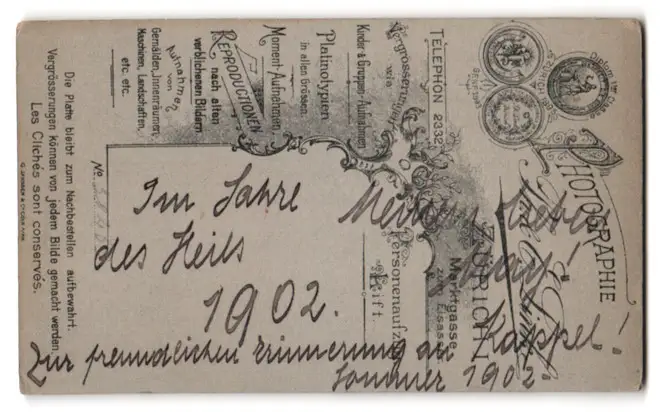 Im Jahre
des Heils
1902.
Meinem
Zur freundlichen Erinnerung an Kappel!
Sommer 1902.
PHOTOGRAPHIE
ZÜRICH I
Marktgasse
zum Elsasser
TELEPHON 2332
Personenaufzug
Lift
Vergrösserungen
wie
Kinder & Gruppen-Aufnahmen
Platinotypien
in allen Grössen.
Moment-Aufnahmen
REPRODUCTIONEN
nach alten
verblichenen Bildern
Aufnahmen
von
Gemälden, Innenräumen
Maschinen, Landschaften,
etc. etc.
No.
Die Platte bleibt zum Nachbestellen aufbewahrt.
Vergrösserungen können von jedem Bilde gemacht werden
Les Clichés sont conservés.